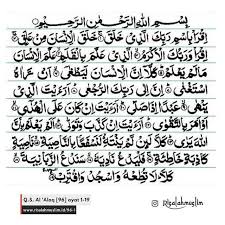 بِسْمِ اللهِ الرَّحْمٰنِ الرَّحِيْمِ
اِقْرَأْ بِاسْمِ رَبِّكَ الَّذِيْ خَلَقَ ۝ خَلَقَ الْاِنْسَانَ مِنْ عَلَقٍ ۝
اِقْرَأْ وَرَبُّكَ الْاَكْرَمُ ۝ الَّذِيْ عَلَّمَ بِالْقَلَمِ ۝ عَلَّمَ الْاِنْسَانَ
مَا لَمْ يَعْلَمْ ۝ كَلَّا اِنَّ الْاِنْسَانَ لَيَطْغٰى ۝ اَنْ رَّاٰهُ
اسْتَغْنٰى ۝ اِنَّ اِلٰى رَبِّكَ الرُّجْعٰى ۝ اَرَاَيْتَ الَّذِيْ
يَنْهٰى ۝ عَبْدًا اِذَا صَلّٰى ۝ اَرَاَيْتَ اِنْ كَانَ عَلَى الْهُدٰى ۝
اَوْ اَمَرَ بِالتَّقْوٰى ۝ اَرَاَيْتَ اِنْ كَذَّبَ وَتَوَلّٰى ۝ اَلَمْ
يَعْلَمْ بِاَنَّ اللهَ يَرٰى ۝ كَلَّا لَئِنْ لَّمْ يَنْتَهِ لَنَسْفَعًا بِالنَّاصِيَةِ ۝ نَاصِيَةٍ
كَاذِبَةٍ خَاطِئَةٍ ۝ فَلْيَدْعُ نَادِيَهٗ ۝ سَنَدْعُ الزَّبَانِيَةَ ۝
كَلَّا لَا تُطِعْهُ وَاسْجُدْ وَاقْتَرِبْ ۝
Q.S. Al 'Alaq [96] ayat 1-19
www.risalahmuslim.id/96-1
@risalahmuslim